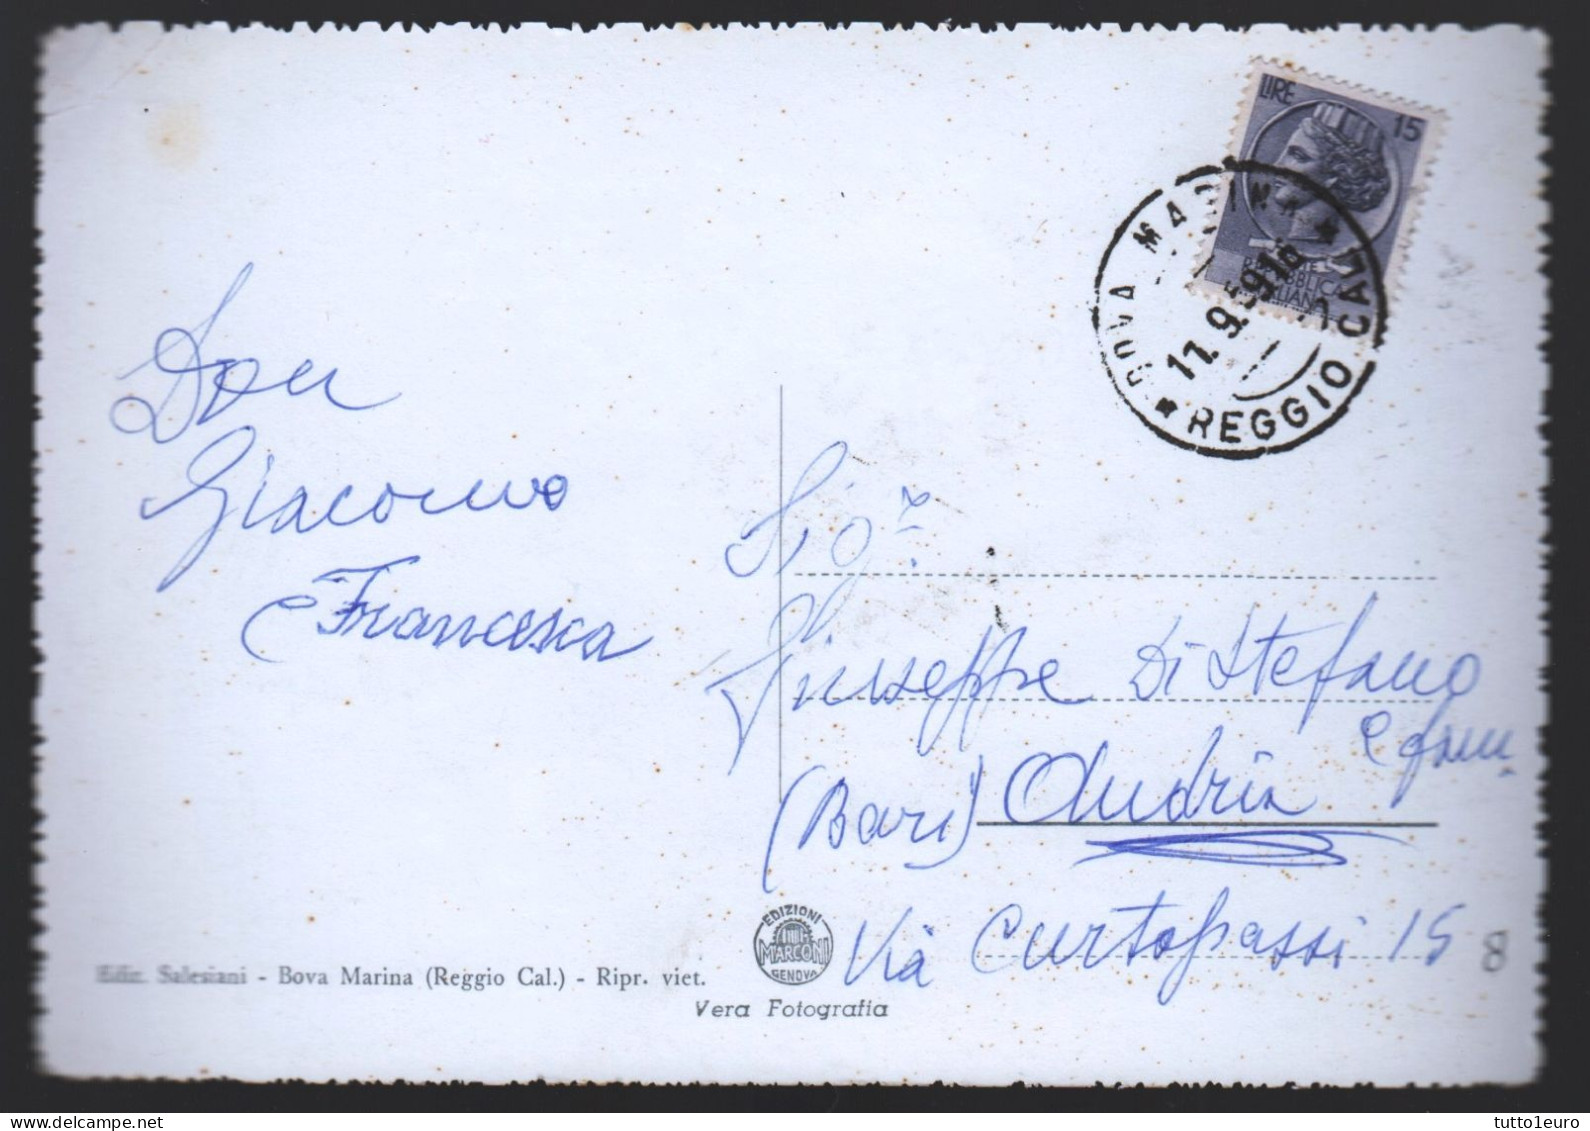 LIRE 15
REPUBBLICA
ITALIANA
BOVA MARINA
11.9.59 18
* REGGIO CAL.
Don
Giacomo
e Francesca
Sigr
Giuseppe Di Stefano
e fam.
(Bari) Andria
Via Curtopassi 15
8
EDIZIONI
MARCONI
GENOVA
Ediz. Salesiani - Bova Marina (Reggio Cal.) - Ripr. viet.
Vera Fotografia
www.delcampe.net
tutto1euro